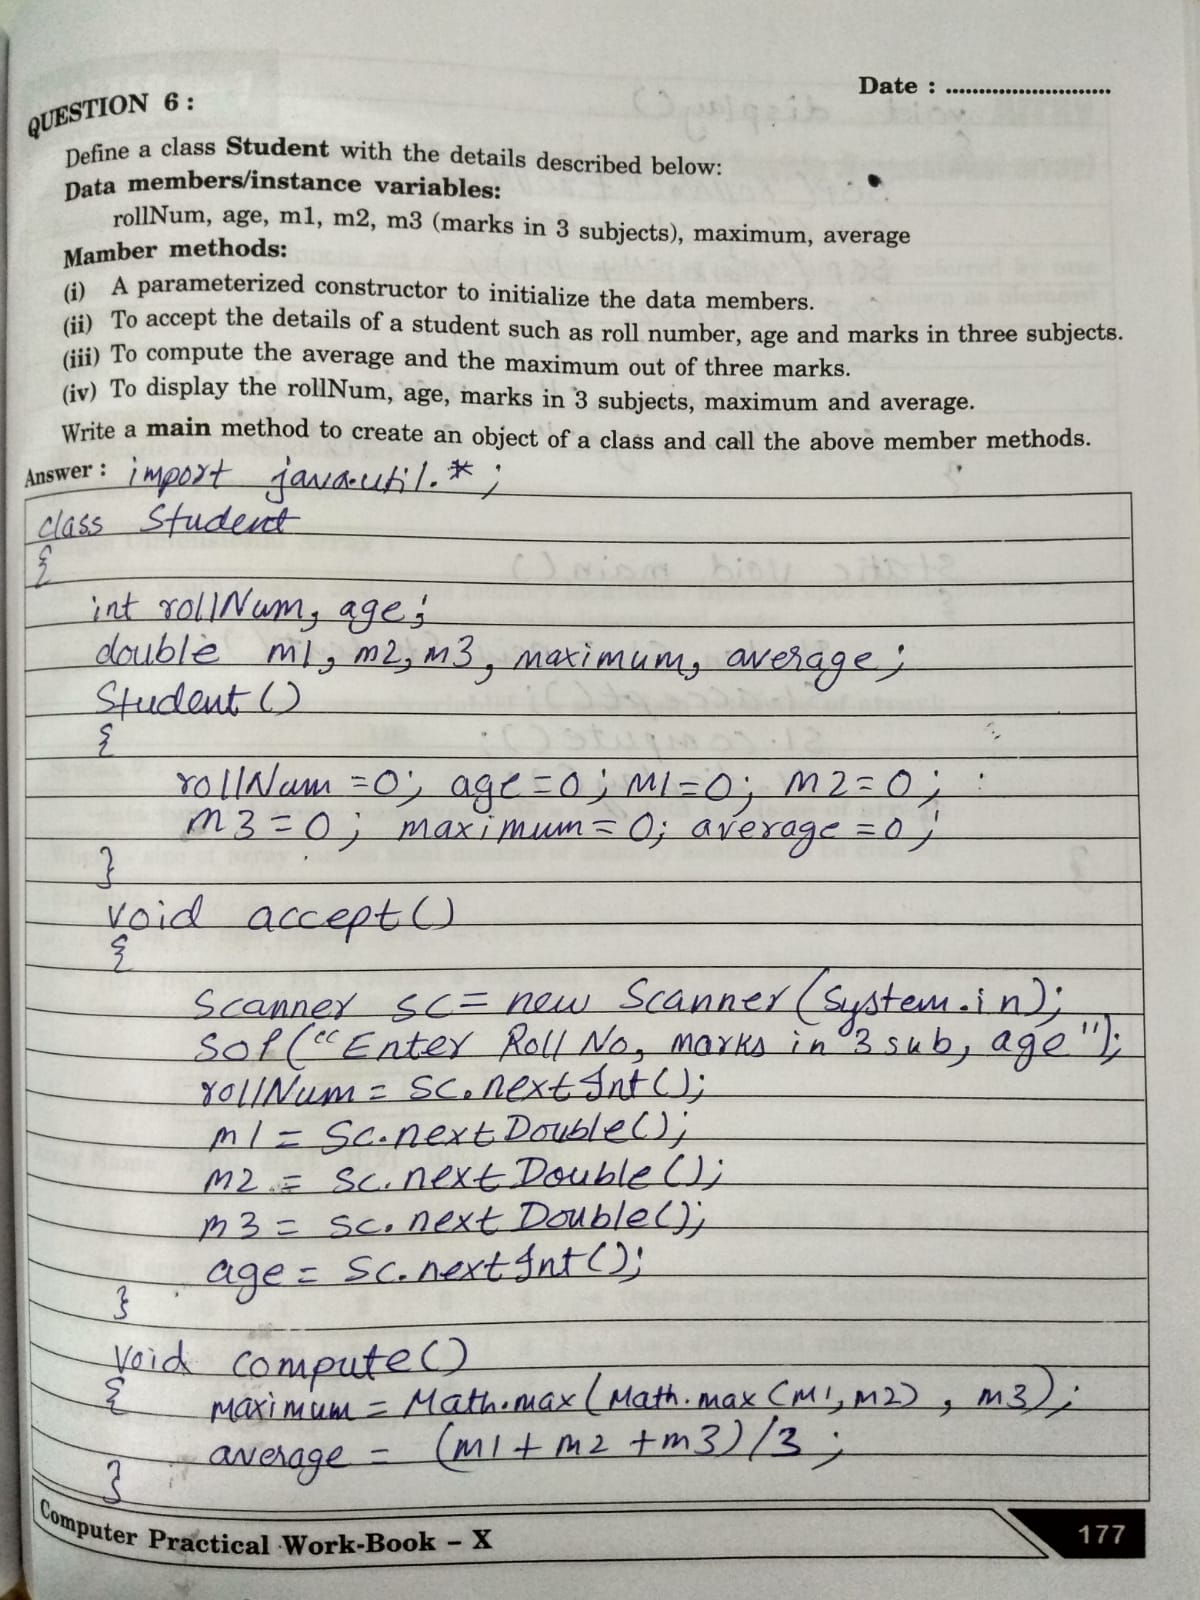 Date : ..........................
QUESTION 6 :
Define a class Student with the details described below:
Data members/instance variables:
rollNum, age, m1, m2, m3 (marks in 3 subjects), maximum, average
Mamber methods:
(i) A parameterized constructor to initialize the data members.
(ii) To accept the details of a student such as roll number, age and marks in three subjects.
(iii) To compute the average and the maximum out of three marks.
(iv) To display the rollNum, age, marks in 3 subjects, maximum and average.
Write a main method to create an object of a class and call the above member methods.
Answer : import java.util.*;
class Student
{
int rollNum, age;
double m1, m2, m3, maximum, average;
Student()
{
rollNum=0; age=0; m1=0; m2=0;
m3=0; maximum=0; average=0;
}
void accept()
{
Scanner sc= new Scanner(System.in);
SOP("Enter Roll No, marks in 3 sub, age");
rollNum= sc.nextInt();
m1= sc.nextDouble();
m2 = sc.nextDouble();
m3= sc.nextDouble();
age= sc.nextInt();
}
void compute()
{
maximum= Math.max(Math.max(m1, m2), m3);
average = (m1+m2+m3)/3;
}
Computer Practical Work-Book – X
177